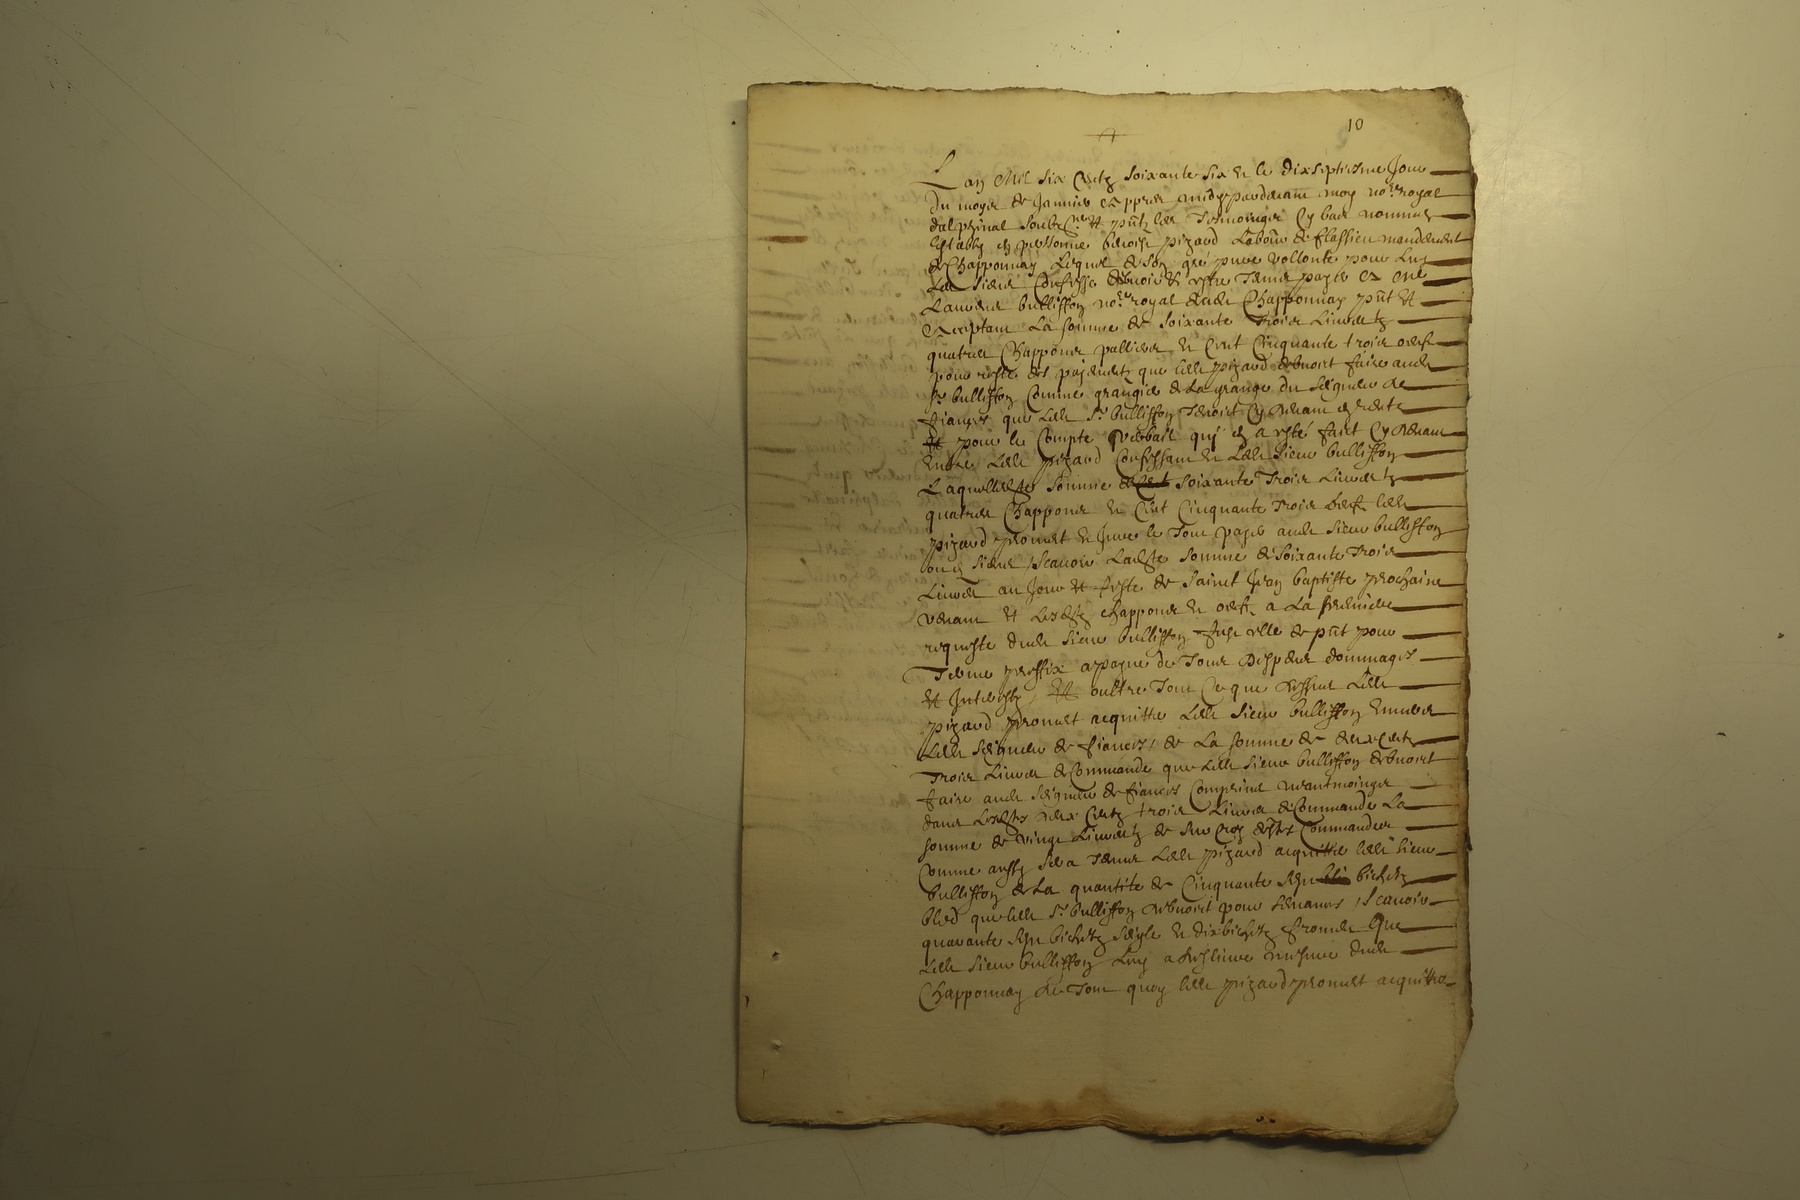 10
Lan Mil six centz soixante six et le dixseptiesme Jour
du moys de Janvier appres midy pardevant moy no.re royal
dalphinal soubz.ne et pñtz les tesmoingz cy bas nommes
estably en personne benoist pizard labour de flassieu mandement
de Chapponnay lequel de son gré pure vollonté pour luy
les siens Confesse debvoir et estre tenu payer a Me
Laurens bullisson no.re royal dude Chapponnay pñt et
acceptant la somme de soixante trois livres tz
quatres Chappons pallies et Cent Cinquante trois oeufz
pour reste des payementz que lede pizard debvoit faire aude
s.r bullisson Comme grangier de la grange du seigneur de
fiances que lede s.r bullisson tenoit cy devant en rente
et pour le Compte verbail quy en a esté faict cy devant
entre lede pizard Confessant et lede sieur bullisson
Laquelle dte somme de soixante trois livres tz
quatres Chappons et Cent Cinquante trois oeufz lede
pizard promet et Jure le tout payer aude sieur bullisson
ou es siens / scavoir ladte somme de soixante trois
livres au Jour et feste de sainct Jean baptiste prochaine
venant et lesdtz chappons et oeufz a la premiere
requeste dude sieur bullisson Jusq celle de pñt pour
terme preffix a payne de tous despens dommages
et Interestz et oultre tout ce que dessus lede
pizard promet acquitter lede sieur bullisson envers
lede seigneur de fiances / de la somme de deux centz
trois livres de Commande que lede sieur bullisson debvoit
faire aude seigneur de fiances Comprins neantmoingz
dans lesdtes deux Centz trois livres de Commande la
somme de vingt livres tz de des dtes Commandes
Comme aussy sera tenu lede pizard acquitter lede sieur
bullisson de la quantité de Cinquante sept bichetz
bled que lede s.r bullisson debvoit pour semances / scavoir
quarante sept bichetz seigle et dix bichetz froment que
lede sieur bullisson luy a deslivré mesure dude
Chapponnay de tout quoy lede pizard promet acquitter